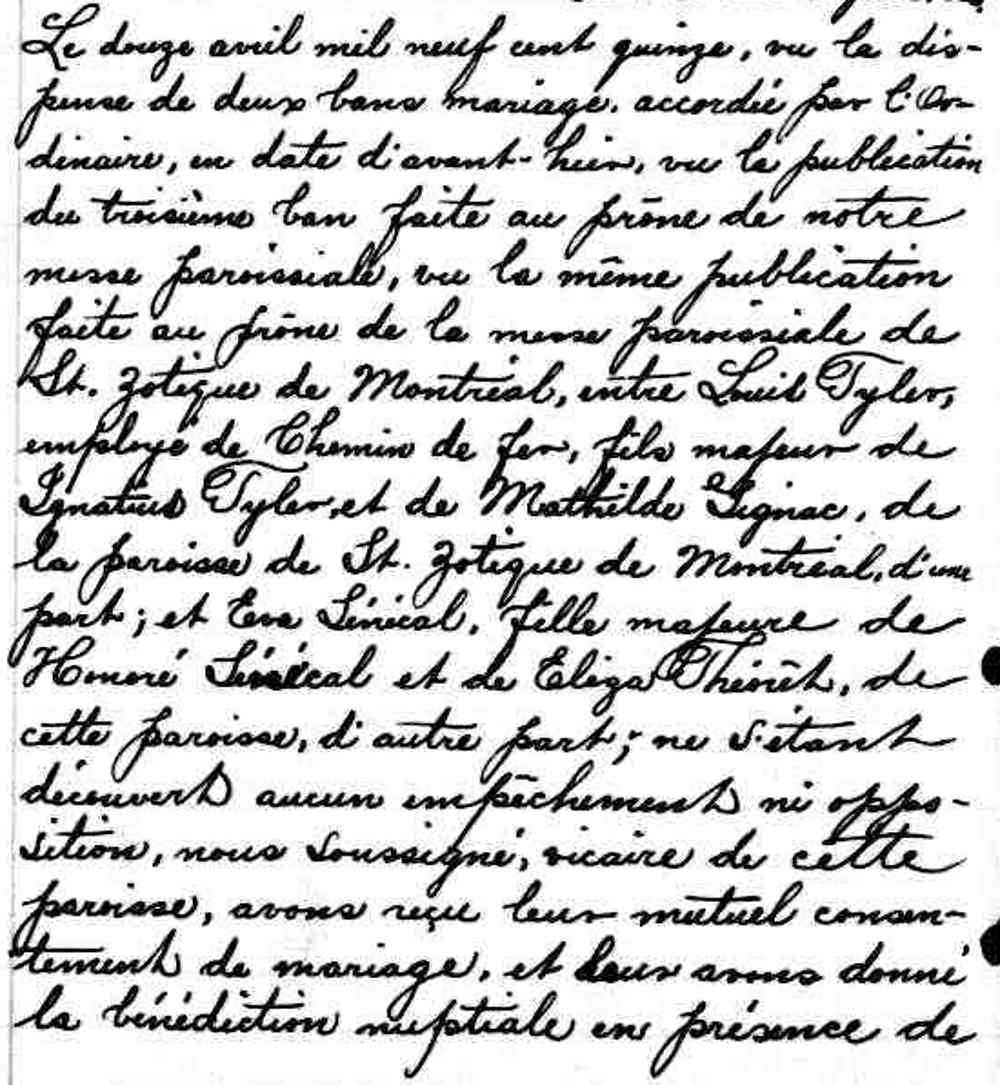 Le douze avril mil neuf cent quinze, vu la dis-
pense de deux bans mariage. accordée par l'Or-
dinaire, en date d'avant-hier, vu la publication
du troisième ban faite au prône de notre
messe paroissiale, vu la même publication
faite au prône de la messe paroissiale de
St. Zotique de Montréal, entre Louis Tyler,
employé de Chemin de fer, fils majeur de
Ignatius Tyler, et de Mathilde Gignac, de
la paroisse de St. Zotique de Montréal, d'une
part; et Eva Sénécal, fille majeure de
Honoré Sénécal et de Eliza Théorêt, de
cette paroisse, d'autre part; ne s'étant
découvert aucun empêchement ni oppo-
sition, nous soussigné, vicaire de cette
paroisse, avons reçu leur mutuel consen-
tement de mariage, et leur avons donné
la bénédiction nuptiale en présence de